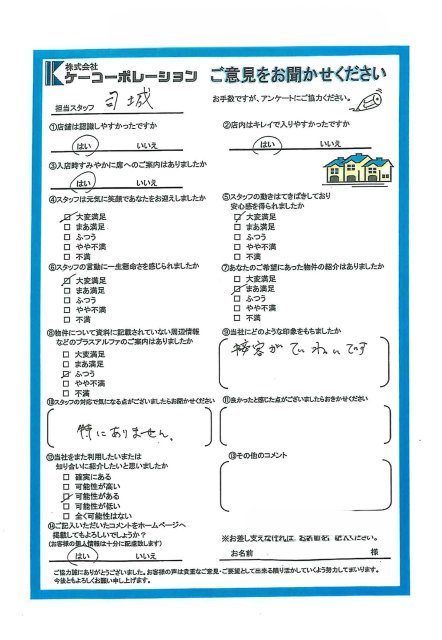 株式会社
ケーコーポレーション ご意見をお聞かせください
担当スタッフ 司城
お手数ですが、アンケートにご協力ください。
①店舗は認識しやすかったですか
はい いいえ
②店内はキレイで入りやすかったですか
はい いいえ
③入店時すみやかに席へのご案内はありましたか
はい いいえ
④スタッフは元気に笑顔であなたをお迎えしましたか
大変満足
まあ満足
ふつう
やや不満
不満
⑤スタッフの動きはてきぱきしており
安心感を得られましたか
大変満足
まあ満足
ふつう
やや不満
不満
⑥スタッフの言動に一生懸命さを感じられましたか
大変満足
まあ満足
ふつう
やや不満
不満
⑦あなたのご希望にあった物件の紹介はありましたか
大変満足
まあ満足
ふつう
やや不満
不満
⑧物件について資料に記載されていない周辺情報
などのプラスアルファのご案内はありましたか
大変満足
まあ満足
ふつう
やや不満
不満
⑨当社にどのような印象をもちましたか
接客がていねいです
⑩スタッフの対応で気になる点がございましたらお聞かせください
特にありません。
⑪良かったと感じた点がございましたらおきかせください
⑫当社をまた利用したいまたは
知り合いに紹介したいと思いましたか
確実にある
可能性が高い
可能性がある
可能性が低い
全く可能性はない
⑬その他のコメント
⑭ご記入いただいたコメントをホームページへ
掲載してもよろしいでしょうか?
(お客様の個人情報は十分に配慮致します)
はい いいえ
※お差し支えなければ、お名前をご記入ください。
お名前 様
ご協力誠にありがとうございました。お客様の声は貴重なご意見・ご要望として出来る限り活かしていくよう努力してまいります。
今後ともよろしくお願い申し上げます。